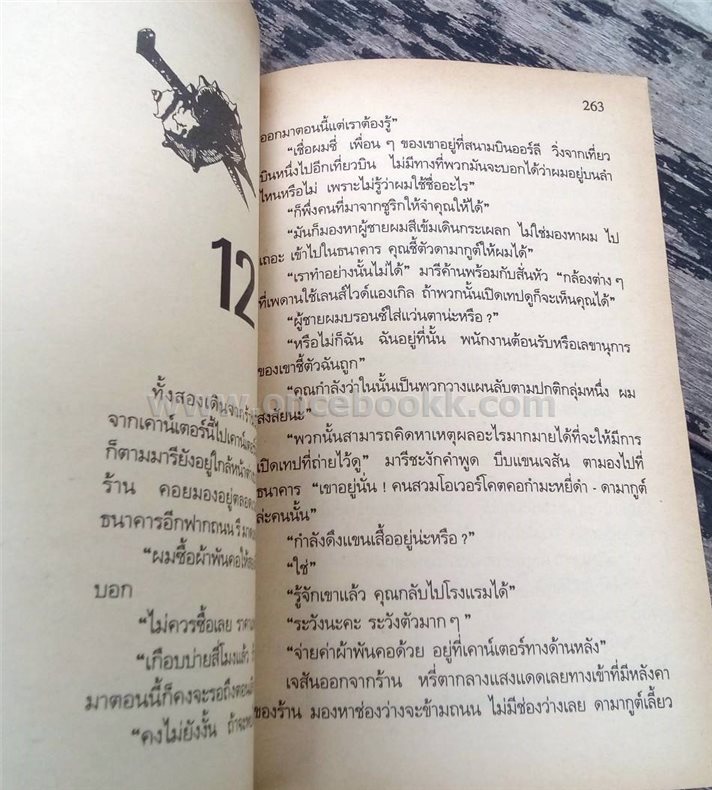 12
ทั้งสองเดินจากร้าน
จากเคาน์เตอร์นี้ไปเคาน์เตอร์
ก็ตามมารียังอยู่ใกล้หน้าต่าง
ร้าน คอยมองอยู่ตลอด
ธนาคารอีกฟากถนน
“ผมซื้อผ้าพันคอให้
บอก
“ไม่ควรซื้อเลย
“เกือบบ่ายสี่โมงแล้ว
มาตอนนี้ก็คงจะรอถึงตอน
“คงไม่ยังงั้น
263
ออกมาตอนนี้แต่เราต้องรู้”
“เชื่อผมซี่ เพื่อนๆ ของเขาอยู่ที่สนามบินออร์ลี วิ่งจากเที่ยว
บินหนึ่งไปอีกเที่ยวบิน ไม่มีทางที่พวกมันจะบอกได้ว่าผมอยู่บนลำ
ไหนหรือไม่ เพราะไม่รู้ว่าผมใช้ชื่ออะไร”
“ก็พึ่งคนที่มาจากซูริกให้จำคุณให้ได้”
“มันก็มองหาผู้ชายผมสีเข้มเดินกระเผลก ไม่ใช่มองหาผม ไป
เถอะ เข้าไปในธนาคาร คุณชี้ตัวดามากูต์ให้ผมได้”
“เราทำอย่างนั้นไม่ได้” มารีค้านพร้อมกับสั่นหัว “กล้องต่างๆ
ที่เพดานใช้เลนส์ไวด์แองเกิล ถ้าพวกนั้นเปิดเทปดูก็จะเห็นคุณได้”
“ผู้ชายผมบรอนซ์ใส่แว่นตาน่ะหรือ?”
“หรือไม่ก็ฉัน ฉันอยู่ที่นั้น พนักงานต้อนรับหรือเลขานุการ
ของเขาชี้ตัวฉันถูก”
“คุณกำลังว่าในนั้นเป็นพวกวางแผนลับตามปกติกลุ่มหนึ่ง ผม
สงสัยนะ”
www.oncebookk.com
“พวกนั้นสามารถคิดหาเหตุผลอะไรมากมายได้ที่จะให้มีการ
เปิดเทปที่ถ่ายไว้ดู” มารีชะงักคำพูด บีบแขนเจสัน ตามองไปที่
ธนาคาร “เขาอยู่นั่น ! คนสวมโอเวอร์โคตคอกำมะหยี่ดำ - ดามากูต์
ล่ะคนนั้น”
“กำลังดึงแขนเสื้ออยู่น่ะหรือ?”
“ใช่”
“รู้จักเขาแล้ว คุณกลับไปโรงแรมได้”
“ระวังนะคะ ระวังตัวมากๆ”
“จ่ายค่าผ้าพันคอด้วย อยู่ที่เคาน์เตอร์ทางด้านหลัง”
เจสันออกจากร้าน หรี่ตากลางแสงแดดเลยทางเข้าที่มีหลังคา
ของร้าน มองหาช่องว่างจะข้ามถนน ไม่มีช่องว่างเลย ดามากูต์เลี้ยว